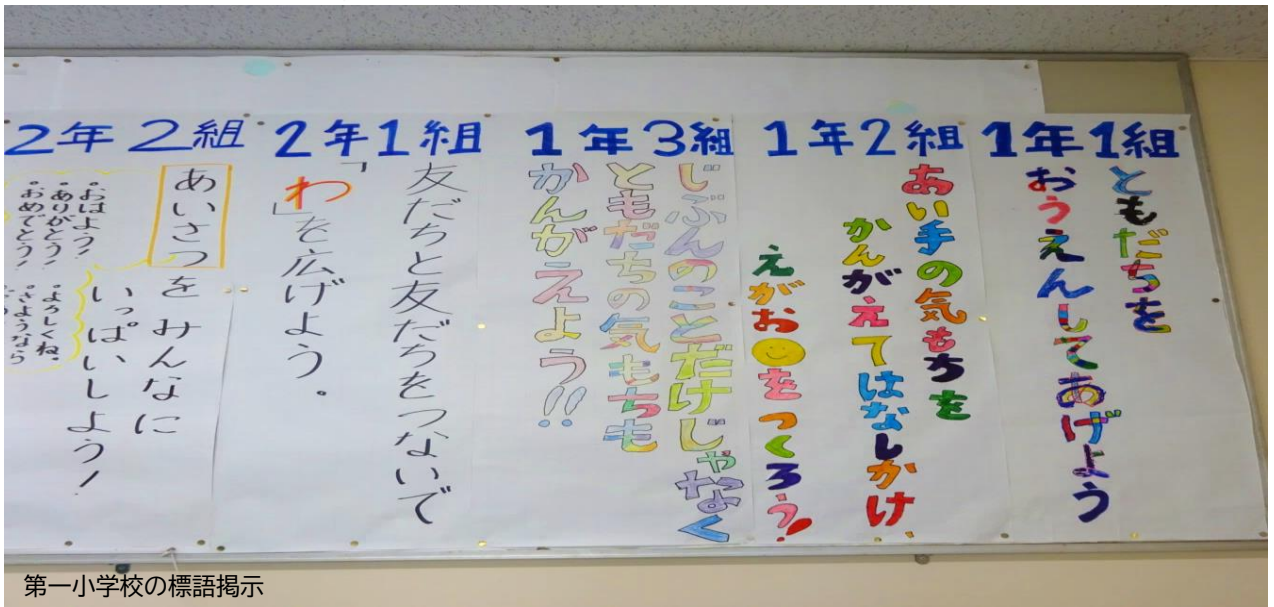 1年1組
ともだちを
おうえんしてあげよう
1年2組
あい手の気もちを
かんがえてはなしかけ
えがおをつくろう!
1年3組
じぶんのことだけじゃなく
ともだちの気もちも
かんがえよう!!
2年1組
友だちと友だちをつないで
「わ」を広げよう。
2年2組
あいさつをみんなに
いっぱいしよう!
。おはよう!
。ありがとう!
。おめでとう!
。よろしくね。
。さようなら
第一小学校の標語掲示